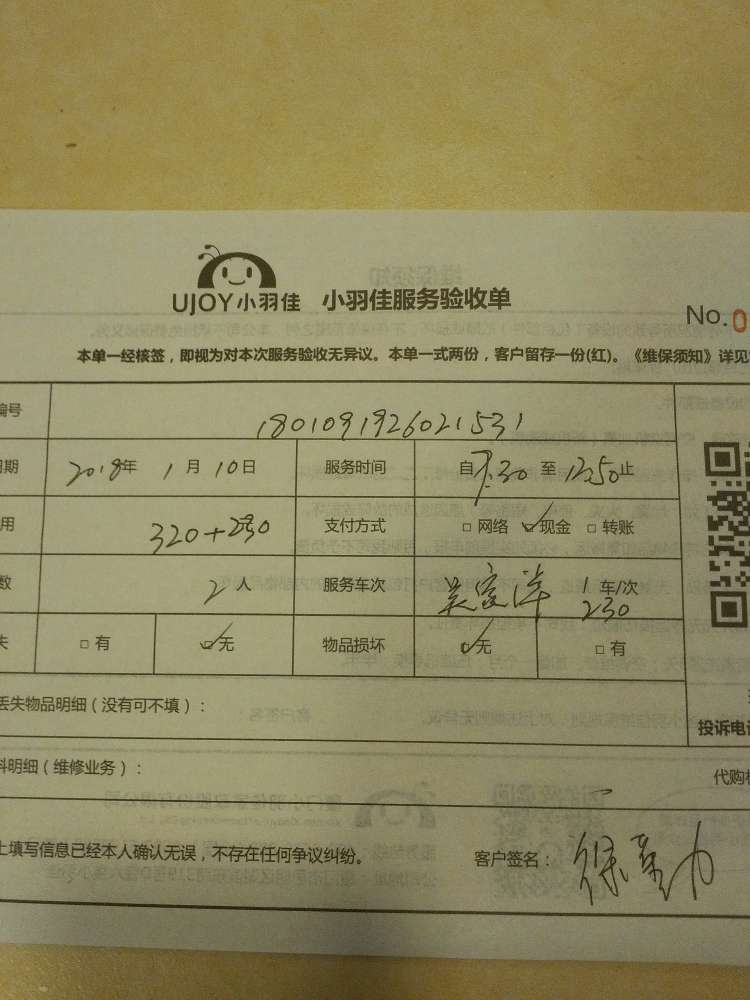 UJOY小羽佳 小羽佳服务验收单
No.0
本单一经核签，即视为对本次服务验收无异议。本单一式两份，客户留存一份(红)。《维保须知》详见
编号 1801091926021531
日期 2018年 1月10日 服务时间 自7:30至12:50止
用 320+230 支付方式 □网络 ☑现金 □转账
数 2人 服务车次 1车/次
230
失 □有 ☑无 物品损坏 ☑无 □有
丢失物品明细（没有可不填）：
投诉电话
料明细（维修业务）：
代购
上填写信息已经本人确认无误，不存在任何争议纠纷。 客户签名：